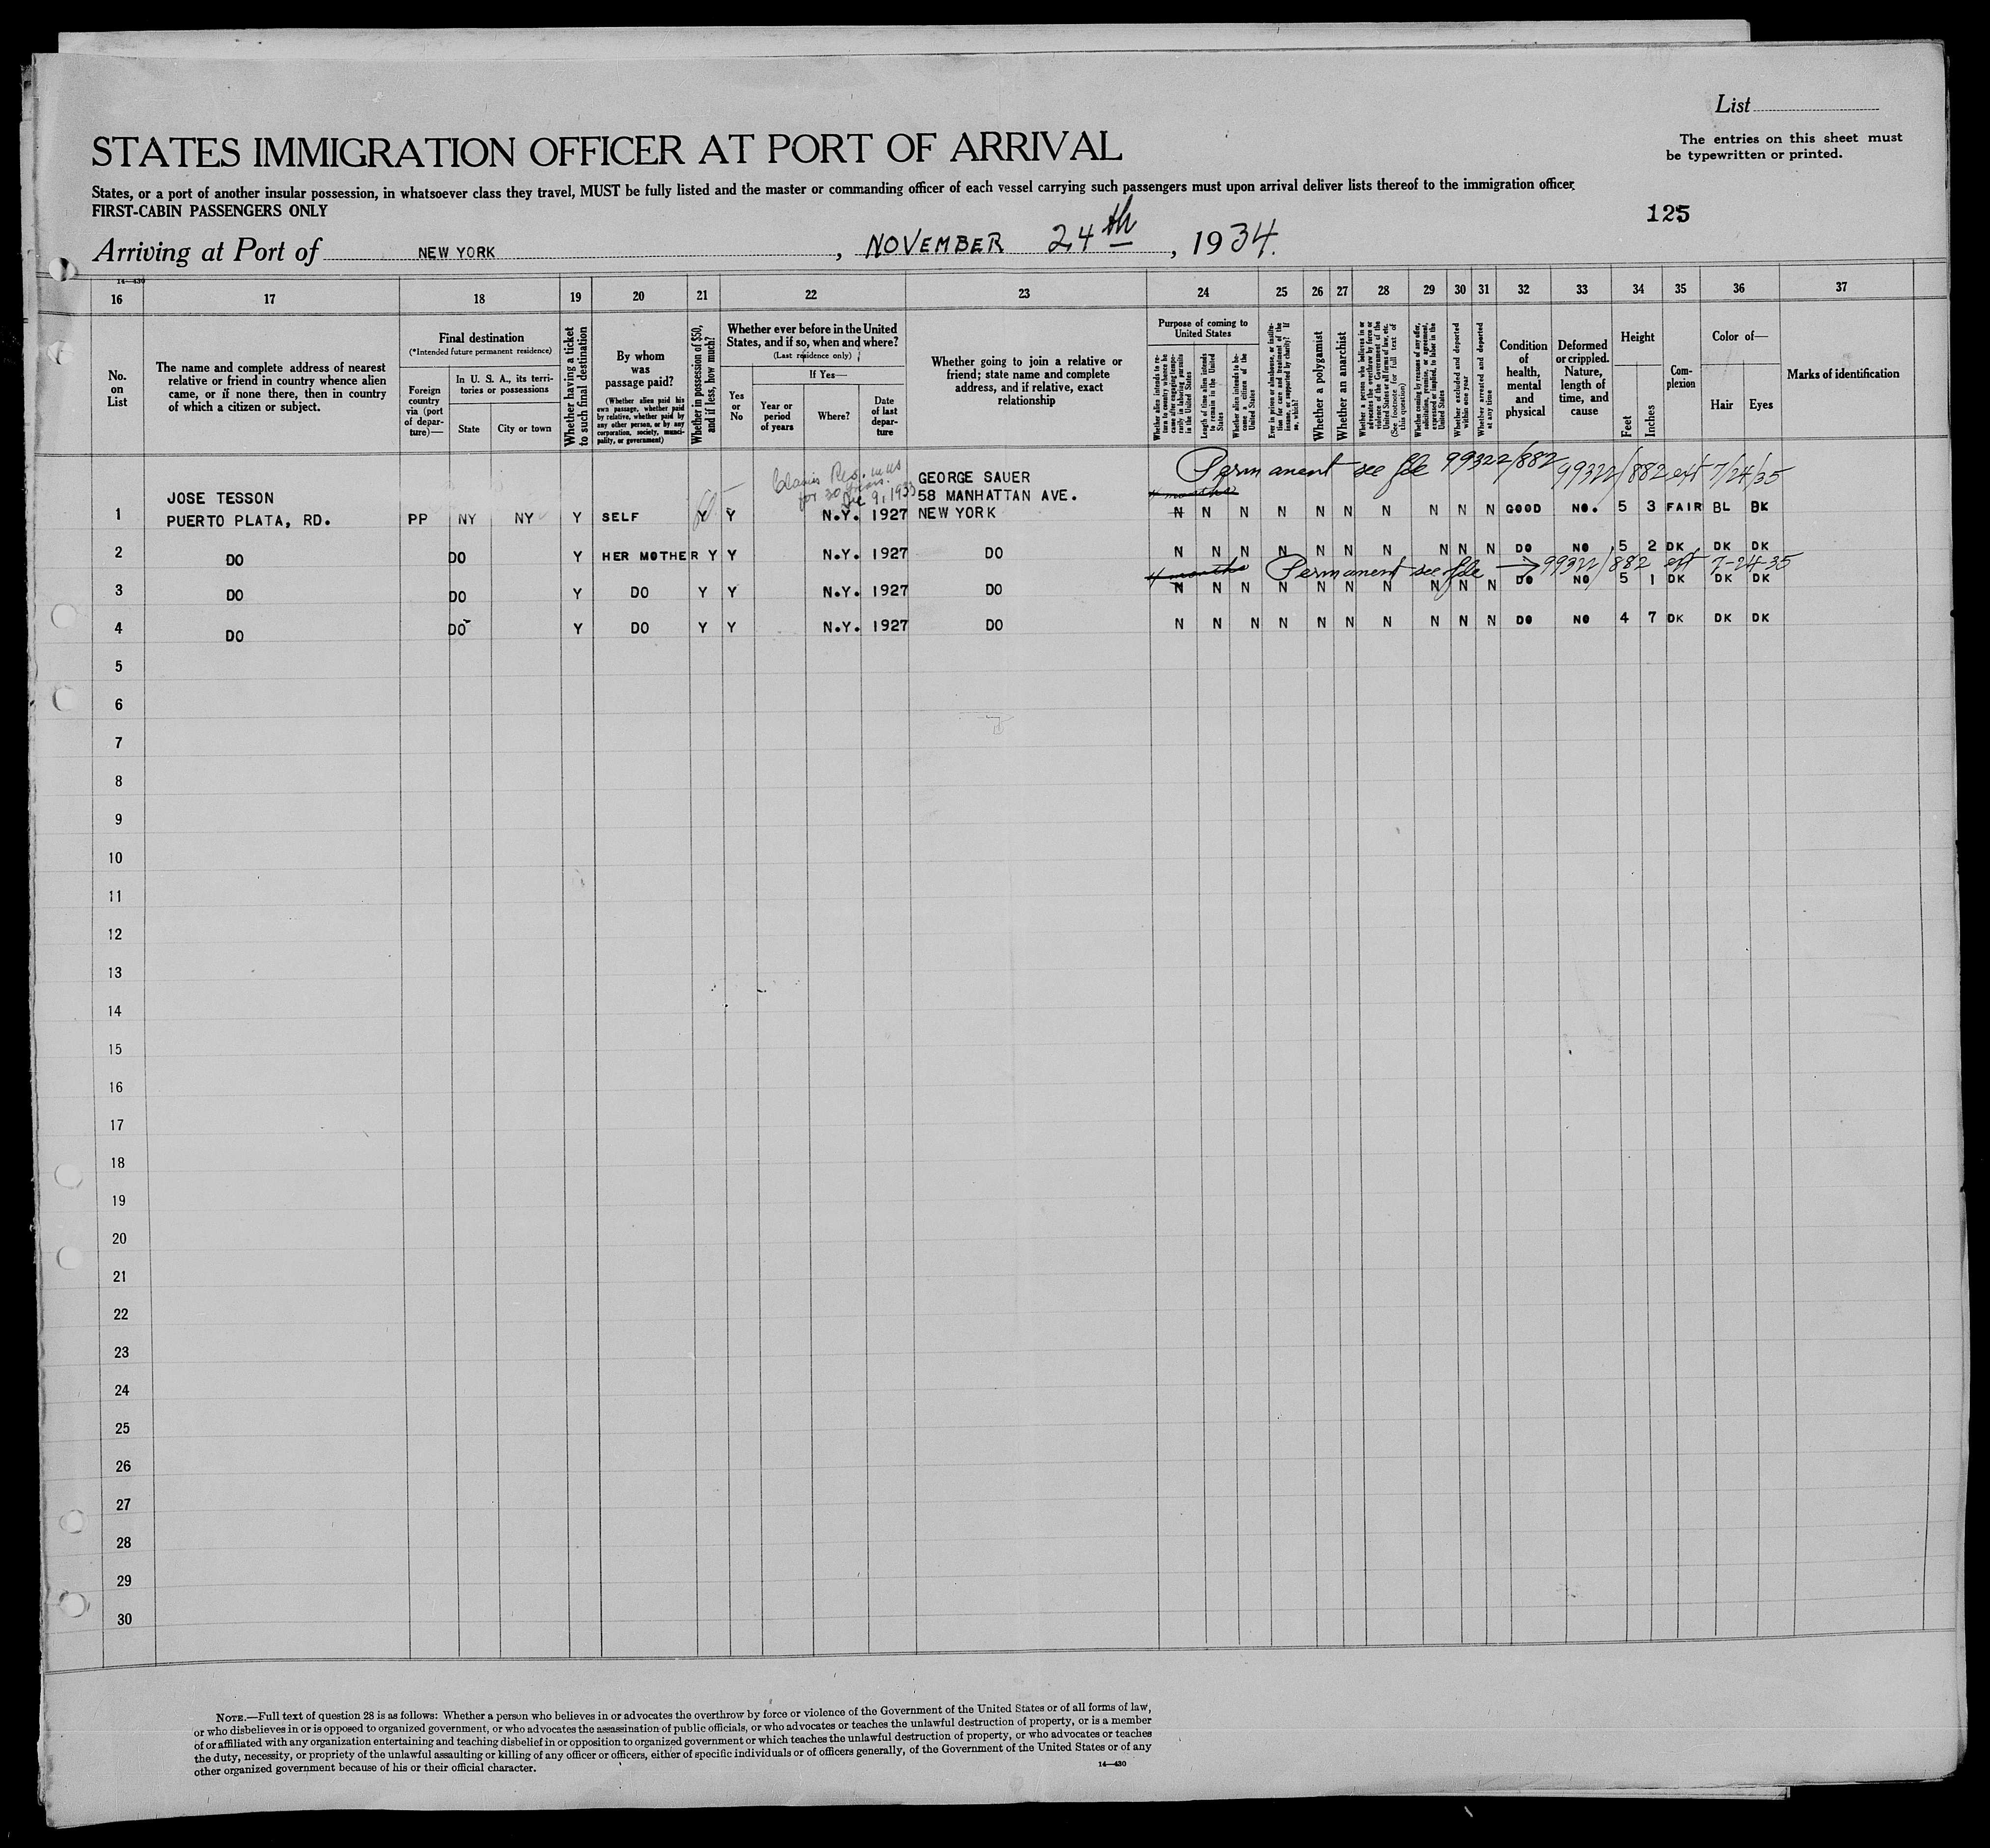 List
The entries on this sheet must
be typewritten or printed.
STATES IMMIGRATION OFFICER AT PORT OF ARRIVAL
States, or a port of another insular possession, in whatsoever class they travel, MUST be fully listed and the master or commanding officer of each vessel carrying such passengers must upon arrival deliver lists thereof to the immigration officer
FIRST-CABIN PASSENGERS ONLY
125
Arriving at Port of NEW YORK, NOVEMBER 24th, 1934.
14—430
16 17 18 19 20 21 22 23 24 25 26 27 28 29 30 31 32 33 34 35 36 37
No. on List
The name and complete address of nearest relative or friend in country whence alien came, or if none there, then in country of which a citizen or subject.
Final destination
(*Intended future permanent residence)
Foreign country via (port of departure)—
In U. S. A., its territories or possessions
State
City or town
Whether having a ticket to such final destination
By whom was passage paid?
(Whether alien paid his own passage, whether paid by relative, whether paid by any other person, or by any corporation, society, municipality, or government)
Whether in possession of $50, and if less, how much?
Whether ever before in the United States, and if so, when and where?
(Last residence only)
Yes or No
If Yes—
Year or period of years
Where?
Date of last departure
Whether going to join a relative or friend; state name and complete address, and if relative, exact relationship
Purpose of coming to United States
Whether alien intends to return to country whence he came after engaging temporarily in laboring pursuits in the United States
Length of time alien intends to remain in the United States
Whether alien intends to become a citizen of the United States
Ever in prison or almshouse, or institution for care and treatment of the insane, or supported by charity? If so, which?
Whether a polygamist
Whether an anarchist
Whether a person who believes in or advocates the overthrow by force or violence of the Government of the United States or all forms of law, etc. (See footnote for full text of this question)
Whether coming by reason of any offer, solicitation, promise, or agreement, expressed or implied, to labor in the United States
Whether excluded and deported within one year
Whether arrested and deported at any time
Condition of health, mental and physical
Deformed or crippled. Nature, length of time, and cause
Height
Feet
Inches
Complexion
Color of—
Hair
Eyes
Marks of identification
for 20 years.
Dec 9, 1933
Permanent see file 99322/882 99322/882 7/24/35
4 months
JOSE TESSON
GEORGE SAUER
58 MANHATTAN AVE.
1 PUERTO PLATA, RD. PP NY NY Y SELF Y Y N.Y. 1927 NEW YORK N N N N N N N N N N GOOD NO. 5 3 FAIR BL BK
2 DO DO Y HER MOTHER Y Y N.Y. 1927 DO N N N N N N N N N N DO NO 5 2 DK DK DK
4 months Permanent see file 99322/882 7-24-35
3 DO DO Y DO Y Y N.Y. 1927 DO N N N N N N N N N N DO NO 5 1 DK DK DK
4 DO DO Y DO Y Y N.Y. 1927 DO N N N N N N N N N N DO NO 4 7 DK DK DK
5
6
7
8
9
10
11
12
13
14
15
16
17
18
19
20
21
22
23
24
25
26
27
28
29
30
NOTE.—Full text of question 28 is as follows: Whether a person who believes in or advocates the overthrow by force or violence of the Government of the United States or of all forms of law,
or who disbelieves in or is opposed to organized government, or who advocates the assassination of public officials, or who advocates or teaches the unlawful destruction of property, or is a member
of or affiliated with any organization entertaining and teaching disbelief in or opposition to organized government or which teaches the unlawful destruction of property, or who advocates or teaches
the duty, necessity, or propriety of the unlawful assaulting or killing of any officer or officers, either of specific individuals or of officers generally, of the Government of the United States or of any
other organized government because of his or their official character.
14—430